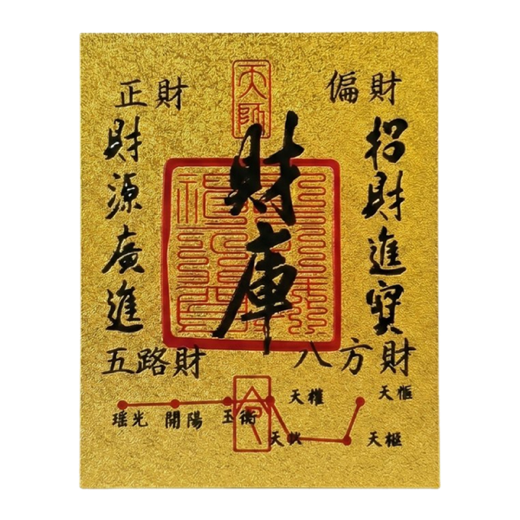 天師
正財
偏財
財源廣進
招財進寶
財庫
五路財
八方財
瑶光 開陽 玉衡 天權
天樞
令